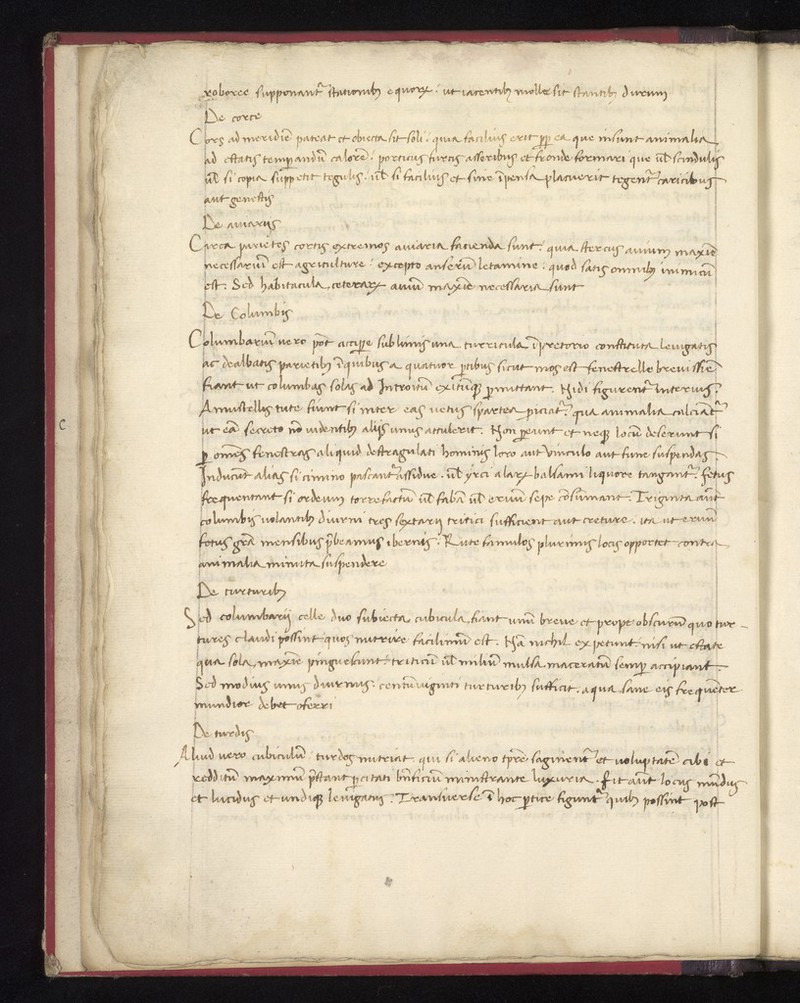 roboree supponantʳ stationibꝫ equoꝝ : ut iacentibꝫ molle sit stantibꝫ durum
De corte
Cors ad meridiē pateat et obiecta sit soli : quia facilius erit ꝓpꝑ ea que insunt animalia
ad estatis temꝑandū calorē : porticus furcis asseribus et fronde formari que ul̄ scindulis
ul̄ si copia suppetit tegulis . ul̄ si facilius et sine īpensa placuerit tegentʳ caricibus
aut genestis
De auiarijs
Circa parietes cortis extremos auiaria facienda sunt : quia stercus auium maxiē
necessariū est agriculture : excepto anserū letamine : quod satis omnibꝫ inimicū
est . Sed habitacula ceteraꝝ auiū maxiē necessaria sunt
De Columbis
Columbariū uero pōt accipe sublimis una turricula ī pretorio constituta leuigatis
ac dealbatis parietibꝫ ī quibus a quatuor ꝑtibus sicut mos est fenestrelle breuissiē
fiant ut columbas solas ad Introitū exitūqꝫ ꝑmittant . Nidi figurentʳ Interius :
A mustellis tute fiunt si inter eas uetus spartea ꝓiciatʳ : qua animalia calciantʳ
ut eā secreto nō uidentibꝫ alijs unus attulerit . Non ꝑeunt et neqꝫ locū deserunt si
ꝑ omēs fenestras aliquid destragulati hominis loro aut Vinculo aut fune suspendas .
Inducūt alias si cimino pascantʳ assidue . ul̄ yrci alaꝝ balsami liquore tangantʳ . fetus
frequentant si ordeum torrefactū ul̄ fabā ul̄ eruū sepe cōsumant . Triginta aūt
columbis uolantibꝫ diurni tres sextarij tritici sufficient aut creture . ita ut eruū
fetus grā mensibus p̄beamus ibernis . Rute ramulos plurimis locis opportet contra
animalia inimica suspendere
De turturibꝫ
Sed columbarij celle duo subiecta cubicula fiant unū breue et prope obscurū quo tur-
tures claudi possint quos nutrire facilimū est . Nā nichil expetunt nisi ut estate
qua sola maxiē pinguescunt triticū ul̄ miliū mulsa maceratū semꝑ accipiant .
Sed modius unus diurnus : centū uiginti turturibꝫ sufficit . aqua sane eis frequēter
mundior debet oferri
De turdis
Aliud uero cubiculū turdos nutriat qui si alieno tp̄re saginentʳ et uoluptatē cibi et
redditū maximū p̄stant ꝑcitati bn̄ficiū ministrante luxuria . fit aūt locus mūdus
et lucidus et undiqꝫ leuigatus . Transuerse ī hoc ꝑtice figuntʳ quibꝫ possint post
c